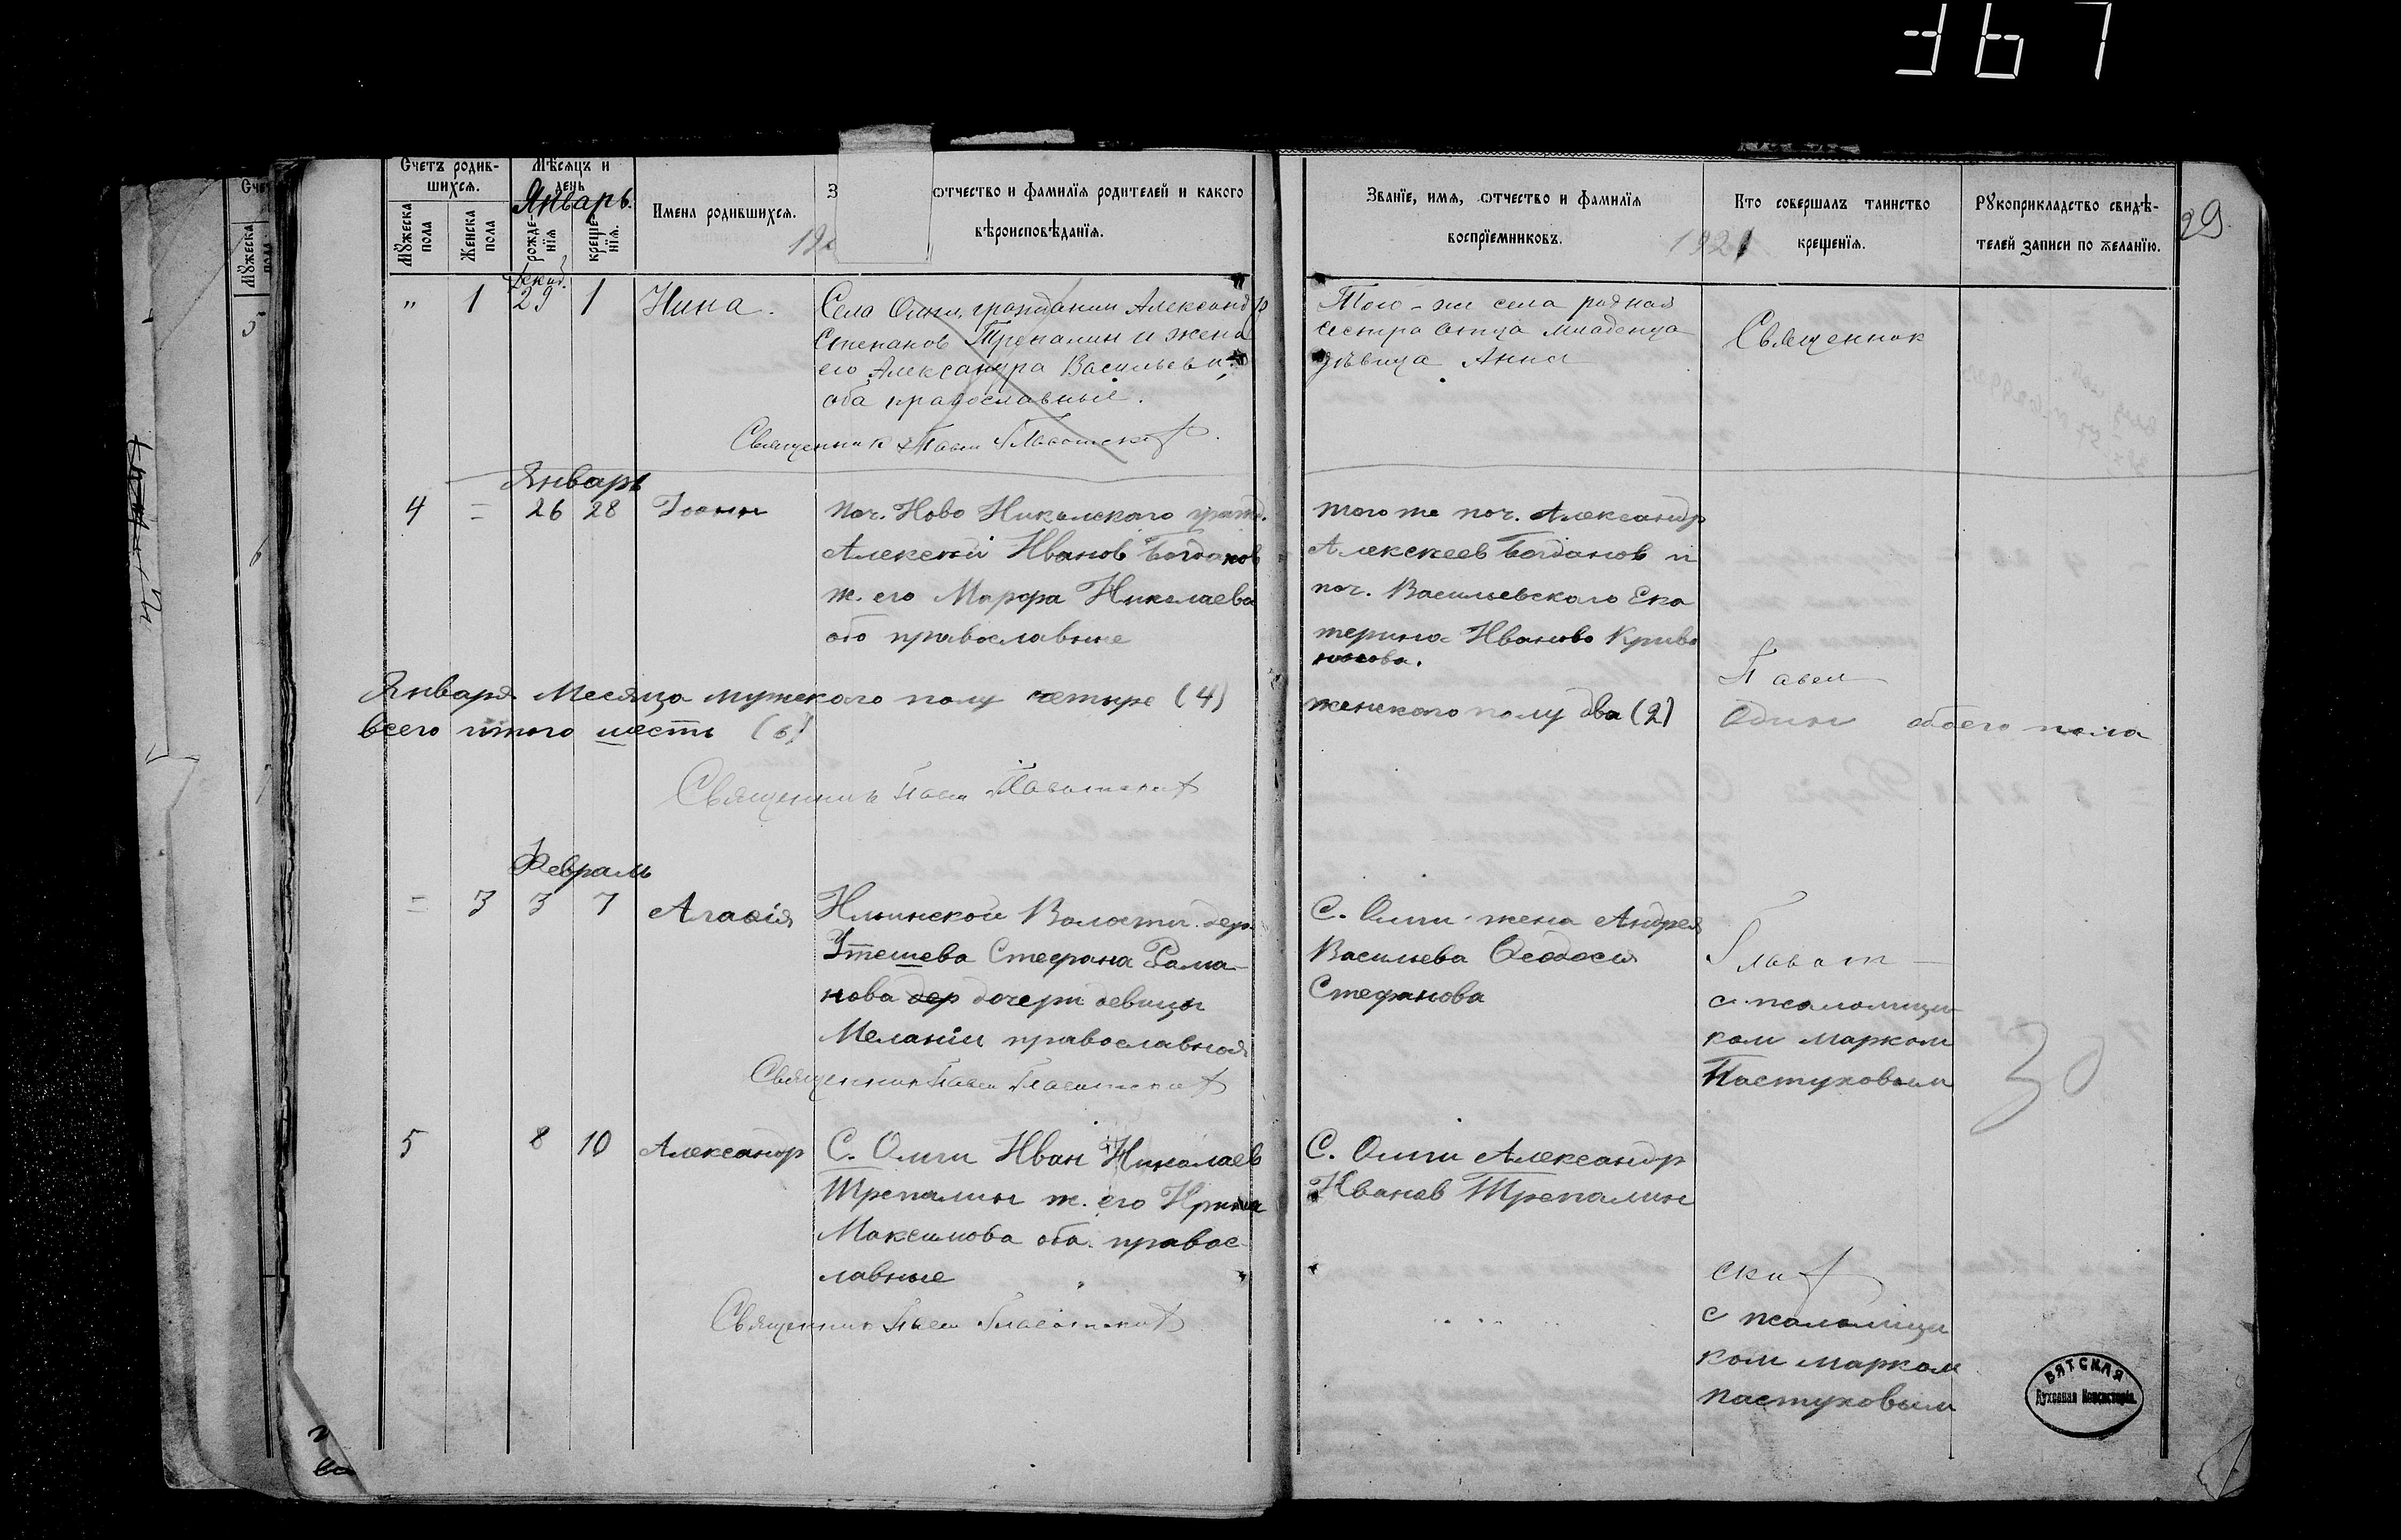 367
Счетъ родив-
шихся.
Мѣсяцъ и
день
Январь.
Мужеска
пола
Женска
пола
рожде-
нія
креще-
нія.
Имена родившихся.
отчество и фамилія родителей и какого
вѣроисповѣданія.
Званіе, имя, отчество и фамилія
воспріемниковъ.
1921
Кто совершалъ таинство
крещенія.
Рукоприкладство свидѣ-
телей записи по желанію.
29
Декаб.
" 1 29 1 Нина.
Села Ольги, гражданин Александр
Степанов Трепалин и жена
его Александра Васильева,
оба православные.
Священник Павел
Того-же села родная
сестра отца младенца
дѣвица Анна
Священник
Январь
4 = 26 28 Іоанн
поч. Ново Никольского гражд.
Алексей Иванов Богданов
ж. его Марфа Николаева
оба православные
того же поч. Александр
Алексеев Богданов и
поч. Васильевского Ека
терина Иванова Криво
носова.
Павел
Января Месяца мужского полу четыре (4)
женского полу два (2)
обоего пола
всего итого шесть (6)
Священник Павел
Февраль
= 3 3 7 Агафія
Ильинской Волости дер.
Утешева Стефана Рома-
нова дер дочери девицы
Меланіи православная
Священник Павел
С. Ольги жена Андрея
Васильева Феодосия
Стефанова
Глават-
с псаломщи-
ком Марком
Пастуховым
30
5 8 10 Александр
С. Ольги Иван Николаев
Трепалин ж. его Ирина
Максимова оба правос-
лавные
Священник Павел
С. Ольги Александр
Иванов Трепалин
ский
с псаломщи
ком Марком
Пастуховым
ВЯТСКАЯ
Духовная Консисторія.